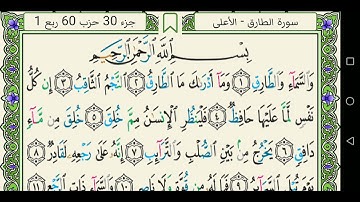 سورة الطارق - الأعلى
جزء 30 حزب 60 ربع 1
بِسْمِ اللَّهِ الرَّحْمَٰنِ الرَّحِيمِ
وَالسَّمَاءِ وَالطَّارِقِ ١ وَمَا أَدْرَاكَ مَا الطَّارِقُ ٢ النَّجْمُ الثَّاقِبُ ٣ إِن كُلُّ
نَفْسٍ لَّمَّا عَلَيْهَا حَافِظٌ ٤ فَلْيَنظُرِ الْإِنسَانُ مِمَّ خُلِقَ ٥ خُلِقَ مِن مَّاءٍ
دَافِقٍ ٦ يَخْرُجُ مِن بَيْنِ الصُّلْبِ وَالتَّرَائِبِ ٧ إِنَّهُ عَلَىٰ رَجْعِهِ لَقَادِرٌ ٨
يَوْمَ تُبْلَى السَّرَائِرُ ٩ فَمَا لَهُ مِن قُوَّةٍ وَلَا نَاصِرٍ ١٠ وَالسَّمَاءِ ذَاتِ الرَّجْعِ ١١